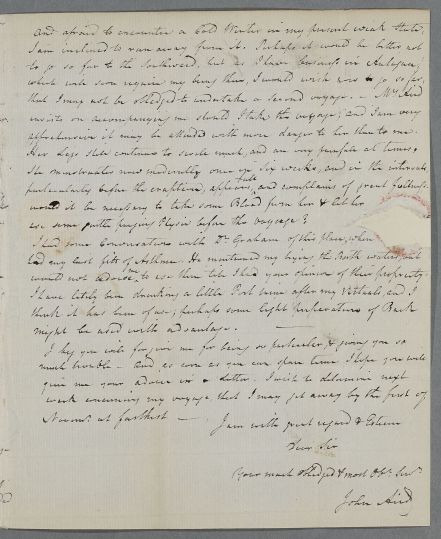 and afraid to encounter a Cold Winter in my present weak state,
I am inclined to run away from it. Perhaps it would be better not
to go so far to the Southward, but as I have business in Antegoa,
which will soon require my being there, I would wish now to go so far,
that I may not be obledged to undertake a second voyage. — Mrs Aird
insists on accompanying me should I take this voyage; and I am very
apprehensive it may be attended with more danger to her than to me.
Her Legs still continue to swell much, and are very purple at times.
She menstruates now moderately once in six weeks, and in the intervals
particularly before the eruption, appears full and complains of great
would it be necessary to take some Blood from her & let her
use some gentle purging Physic before the voyage?
I had some Conversation with Dr. Graham of this place, when
I had my last fits of Asthma. He mentioned my trying the Bath waters, but
would not advise me to use them till I had your opinion of their propriety.
I have lately been drinking a little Port wine after my Victuals, and I
think it has been of use; perhaps some light preparations of Bark
might be used with advantage. —
I beg you will forgive me for being so particular, & giving you so
much trouble — And as soon as you can spare time I hope you will
give me your advice in a letter. I wish to determine next
week concerning my voyage, that I may get away by the first of
Novemr. at farthest —
I am with great regard & Esteem
Dear Sir
Your much Obledged & most Obt. Servt.
John Aird